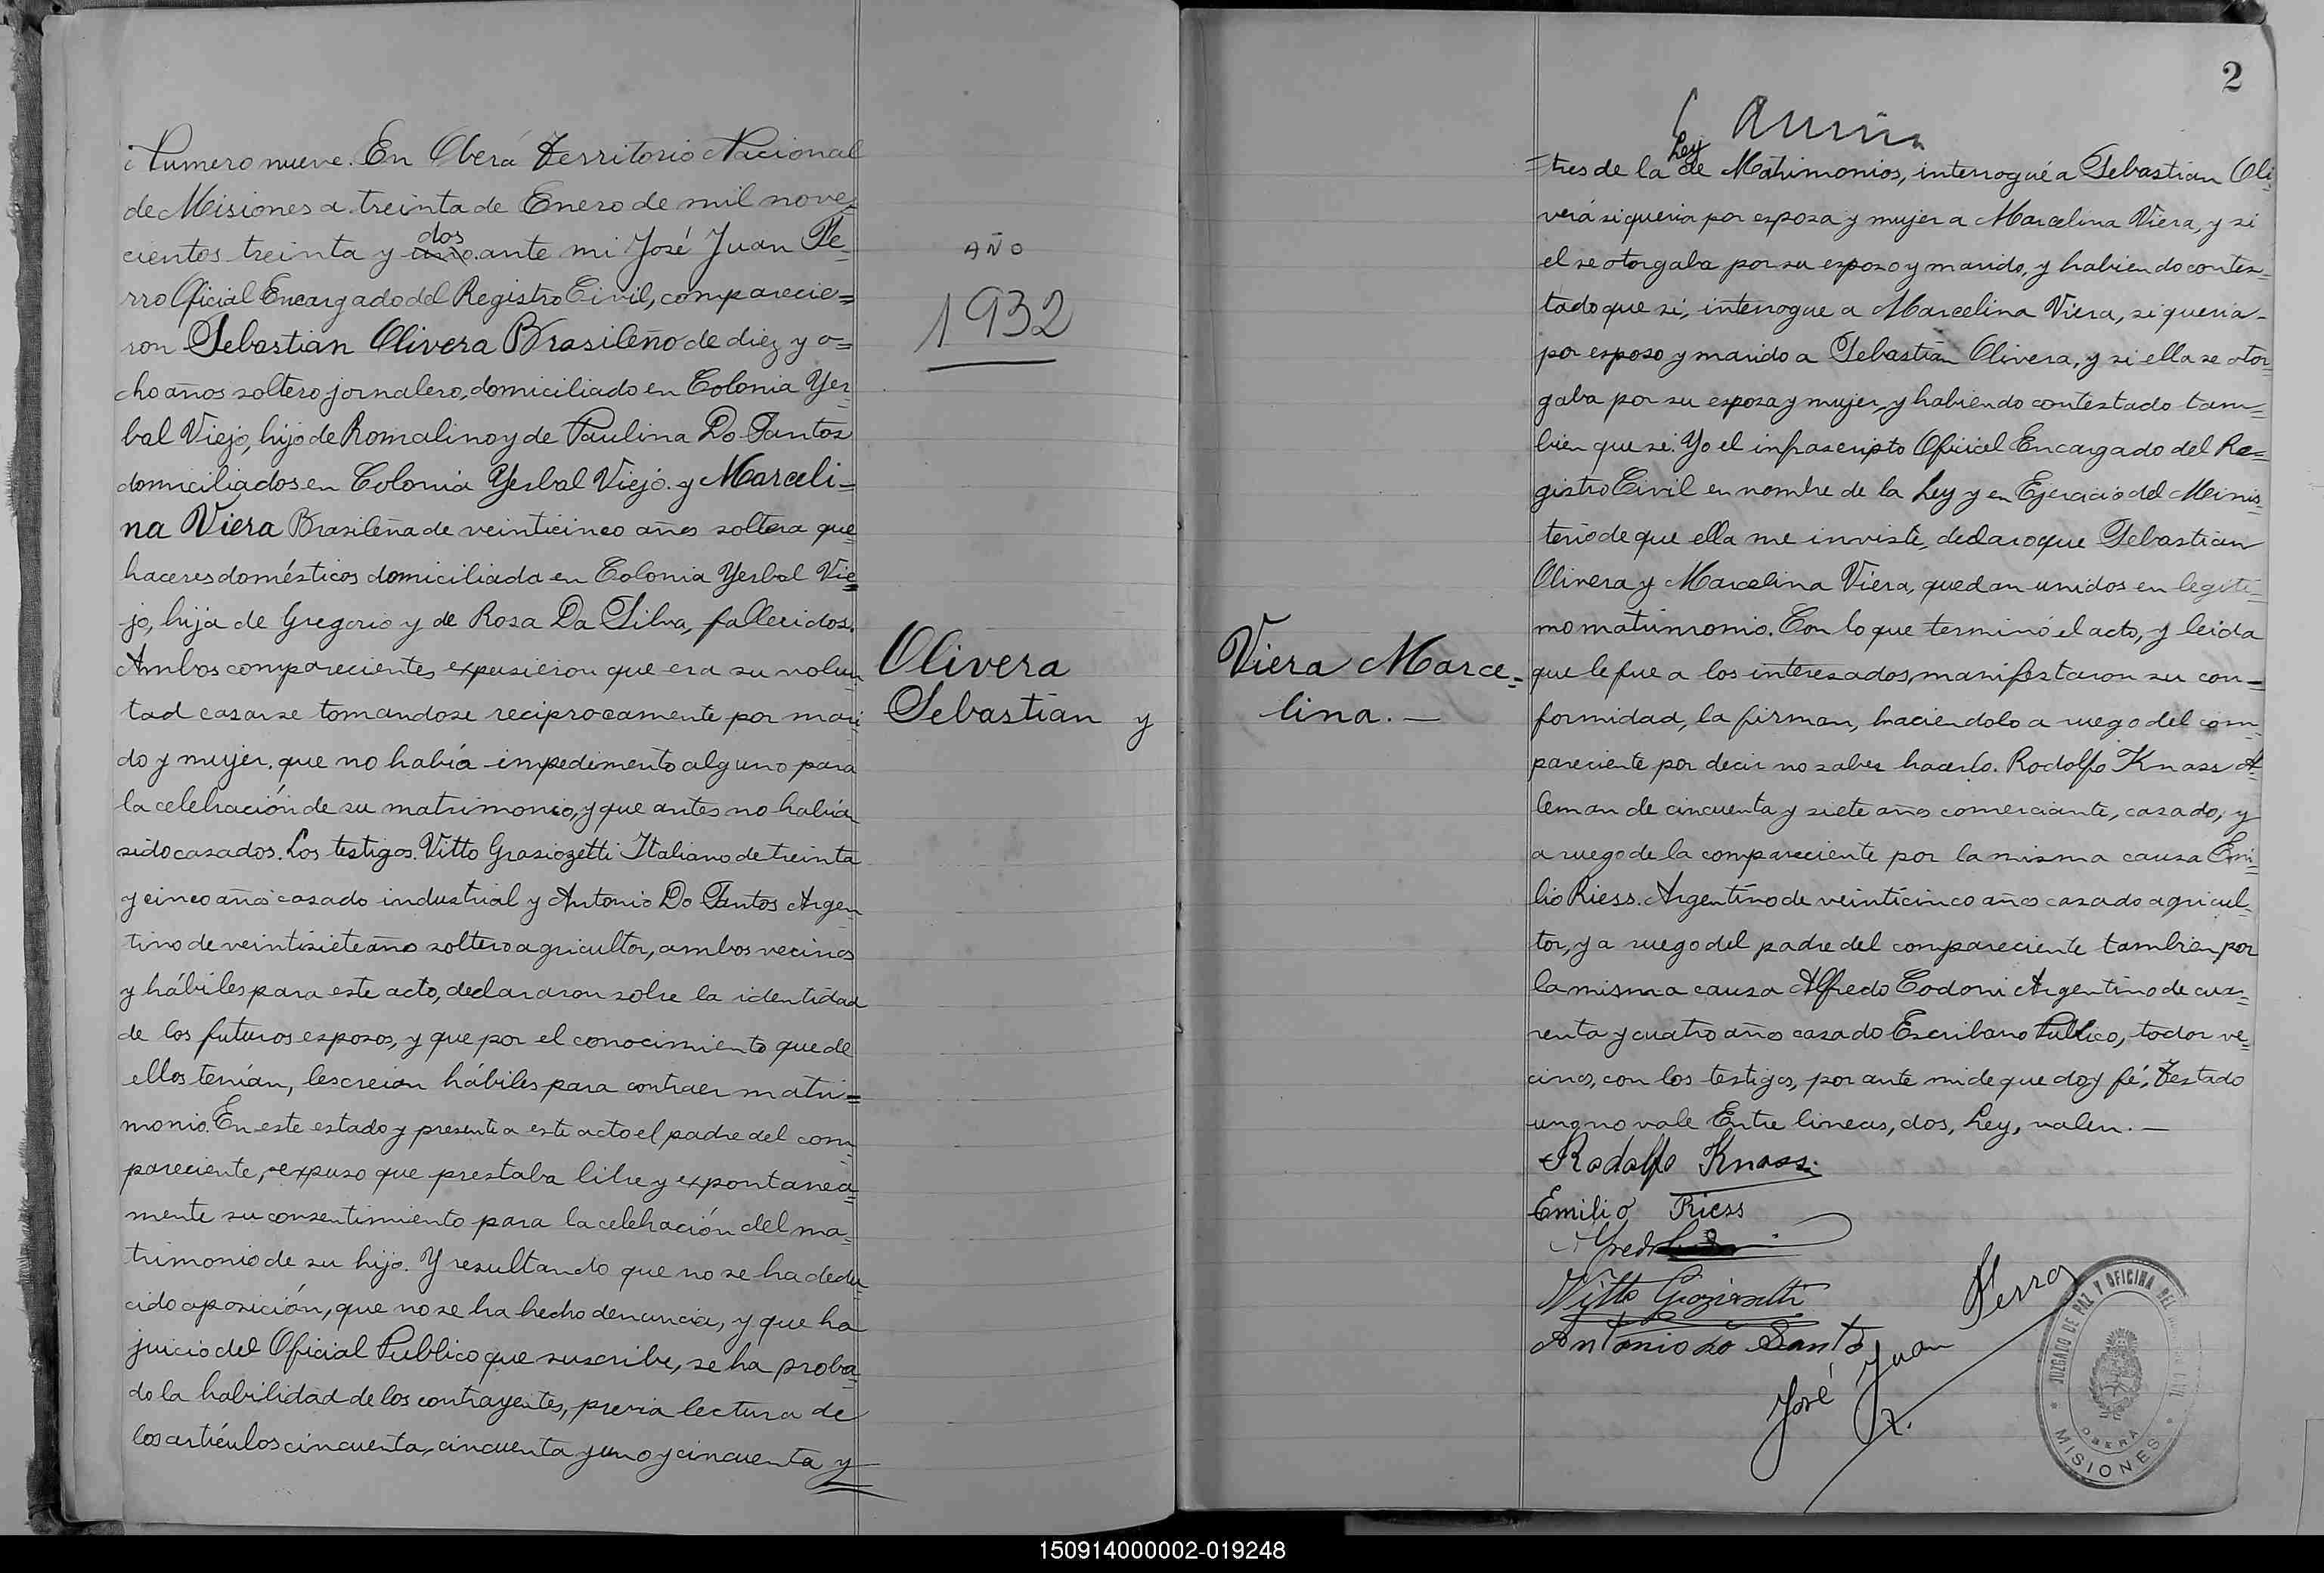 Numero nueve. En Oberá Territorio Nacional
de Misiones a treinta de Enero de mil nove=
dos
cientos treinta y uno. ante mi José Juan Pe-
rro Oficial Encargado del Registro Civil, comparecie=
ron Sebastian Olivera Brasileño de diez y o=
cho años soltero jornalero, domiciliado en Colonia Yer=
bal Viejo, hijo de Romalino y de Paulina Do Santos
domiciliados en Colonia Yerbal Viejo. y Marceli=
na Viera Brasileña de veinticinco años soltera que=
haceres domésticos domiciliada en Colonia Yerbal Vie=
jo, hija de Gregorio y de Rosa Da Silva, fallecidos.
Ambos comparecientes expusieron que era su volun=
tad casarse tomandose reciprocamente por mari=
do y mujer. que no había impedimento alguno para
la celebración de su matrimonio, y que antes no había
sido casados. Los testigos. Vitto Graziozetti Italiano de treinta
y cinco años casado industrial y Antonio Do Santos Argen=
tino de veintisiete años soltero agricultor, ambos vecinos
y hábiles para este acto, declararon sobre la identidad
de los futuros esposos, y que por el conocimiento que de
ellos tenían, les creian hábiles para contraer matri=
monio. En este estado y presente a este acto el padre del com=
pareciente, expuso que prestaba libre y expontanea=
mente su consentimiento para la celebración del ma=
trimonio de su hijo. Y resultando que no se ha dedu=
cido oposición, que no se ha hecho denuncia, y que ha
juicio del Oficial Publico que suscribe, se ha proba=
do la habilidad de los contrayentes, previa lectura de
los artículos cincuenta, cincuenta y uno y cincuenta y
AÑO
1932
Olivera
Sebastian y
2
Viera Marce=
lina.—
Ley
=tres de la de Matrimonios, interrogué a Sebastian Oli=
verá si queria por esposa y mujer a Marcelina Viera, y si
el se otorgaba por su esposo y marido, y habiendo contes=
tado que si, interrogue a Marcelina Viera, si queria-
por esposo y marido a Sebastián Olivera, y si ella se otor=
gaba por su esposa y mujer, y habiendo contestado tam=
bien que si. Yo el infrascripto Oficial Encargado del Re=
gistro Civil en nombre de la Ley y en Ejercicio del Minis=
terio de que ella me inviste, declaro que Sebastian
Olivera y Marcelina Viera, quedan unidos en legiti=
mo matrimonio. Con lo que terminó el acto, y leida
que le fue a los interesados, manifestaron su con=
formidad, la firman, haciendolo a ruego del com=
pareciente por decir no saber hacerlo. Rodolfo Knass A=
leman de cincuenta y siete años comerciante, casado, y
a ruego de la compareciente por la misma causa Emi=
lio Riess. Argentino de veinticinco años casado agricul=
tor, y a ruego del padre del compareciente tambien por
la misma causa Alfredo Codoni Argentino de cua=
renta y cuatro años casado Escribano Publico, todos ve=
cinos, con los testigos, por ante mi de que doy fé. Testado
uno no vale Entre lineas, dos, Ley, valen.—
Rodolfo Knass.
Emilio Riess
Vitto
Antonio do Santo
José Juan Perro
JUZGADO DE PAZ Y OFICINA DEL
OBERA
MISIONES
150914000002-019248